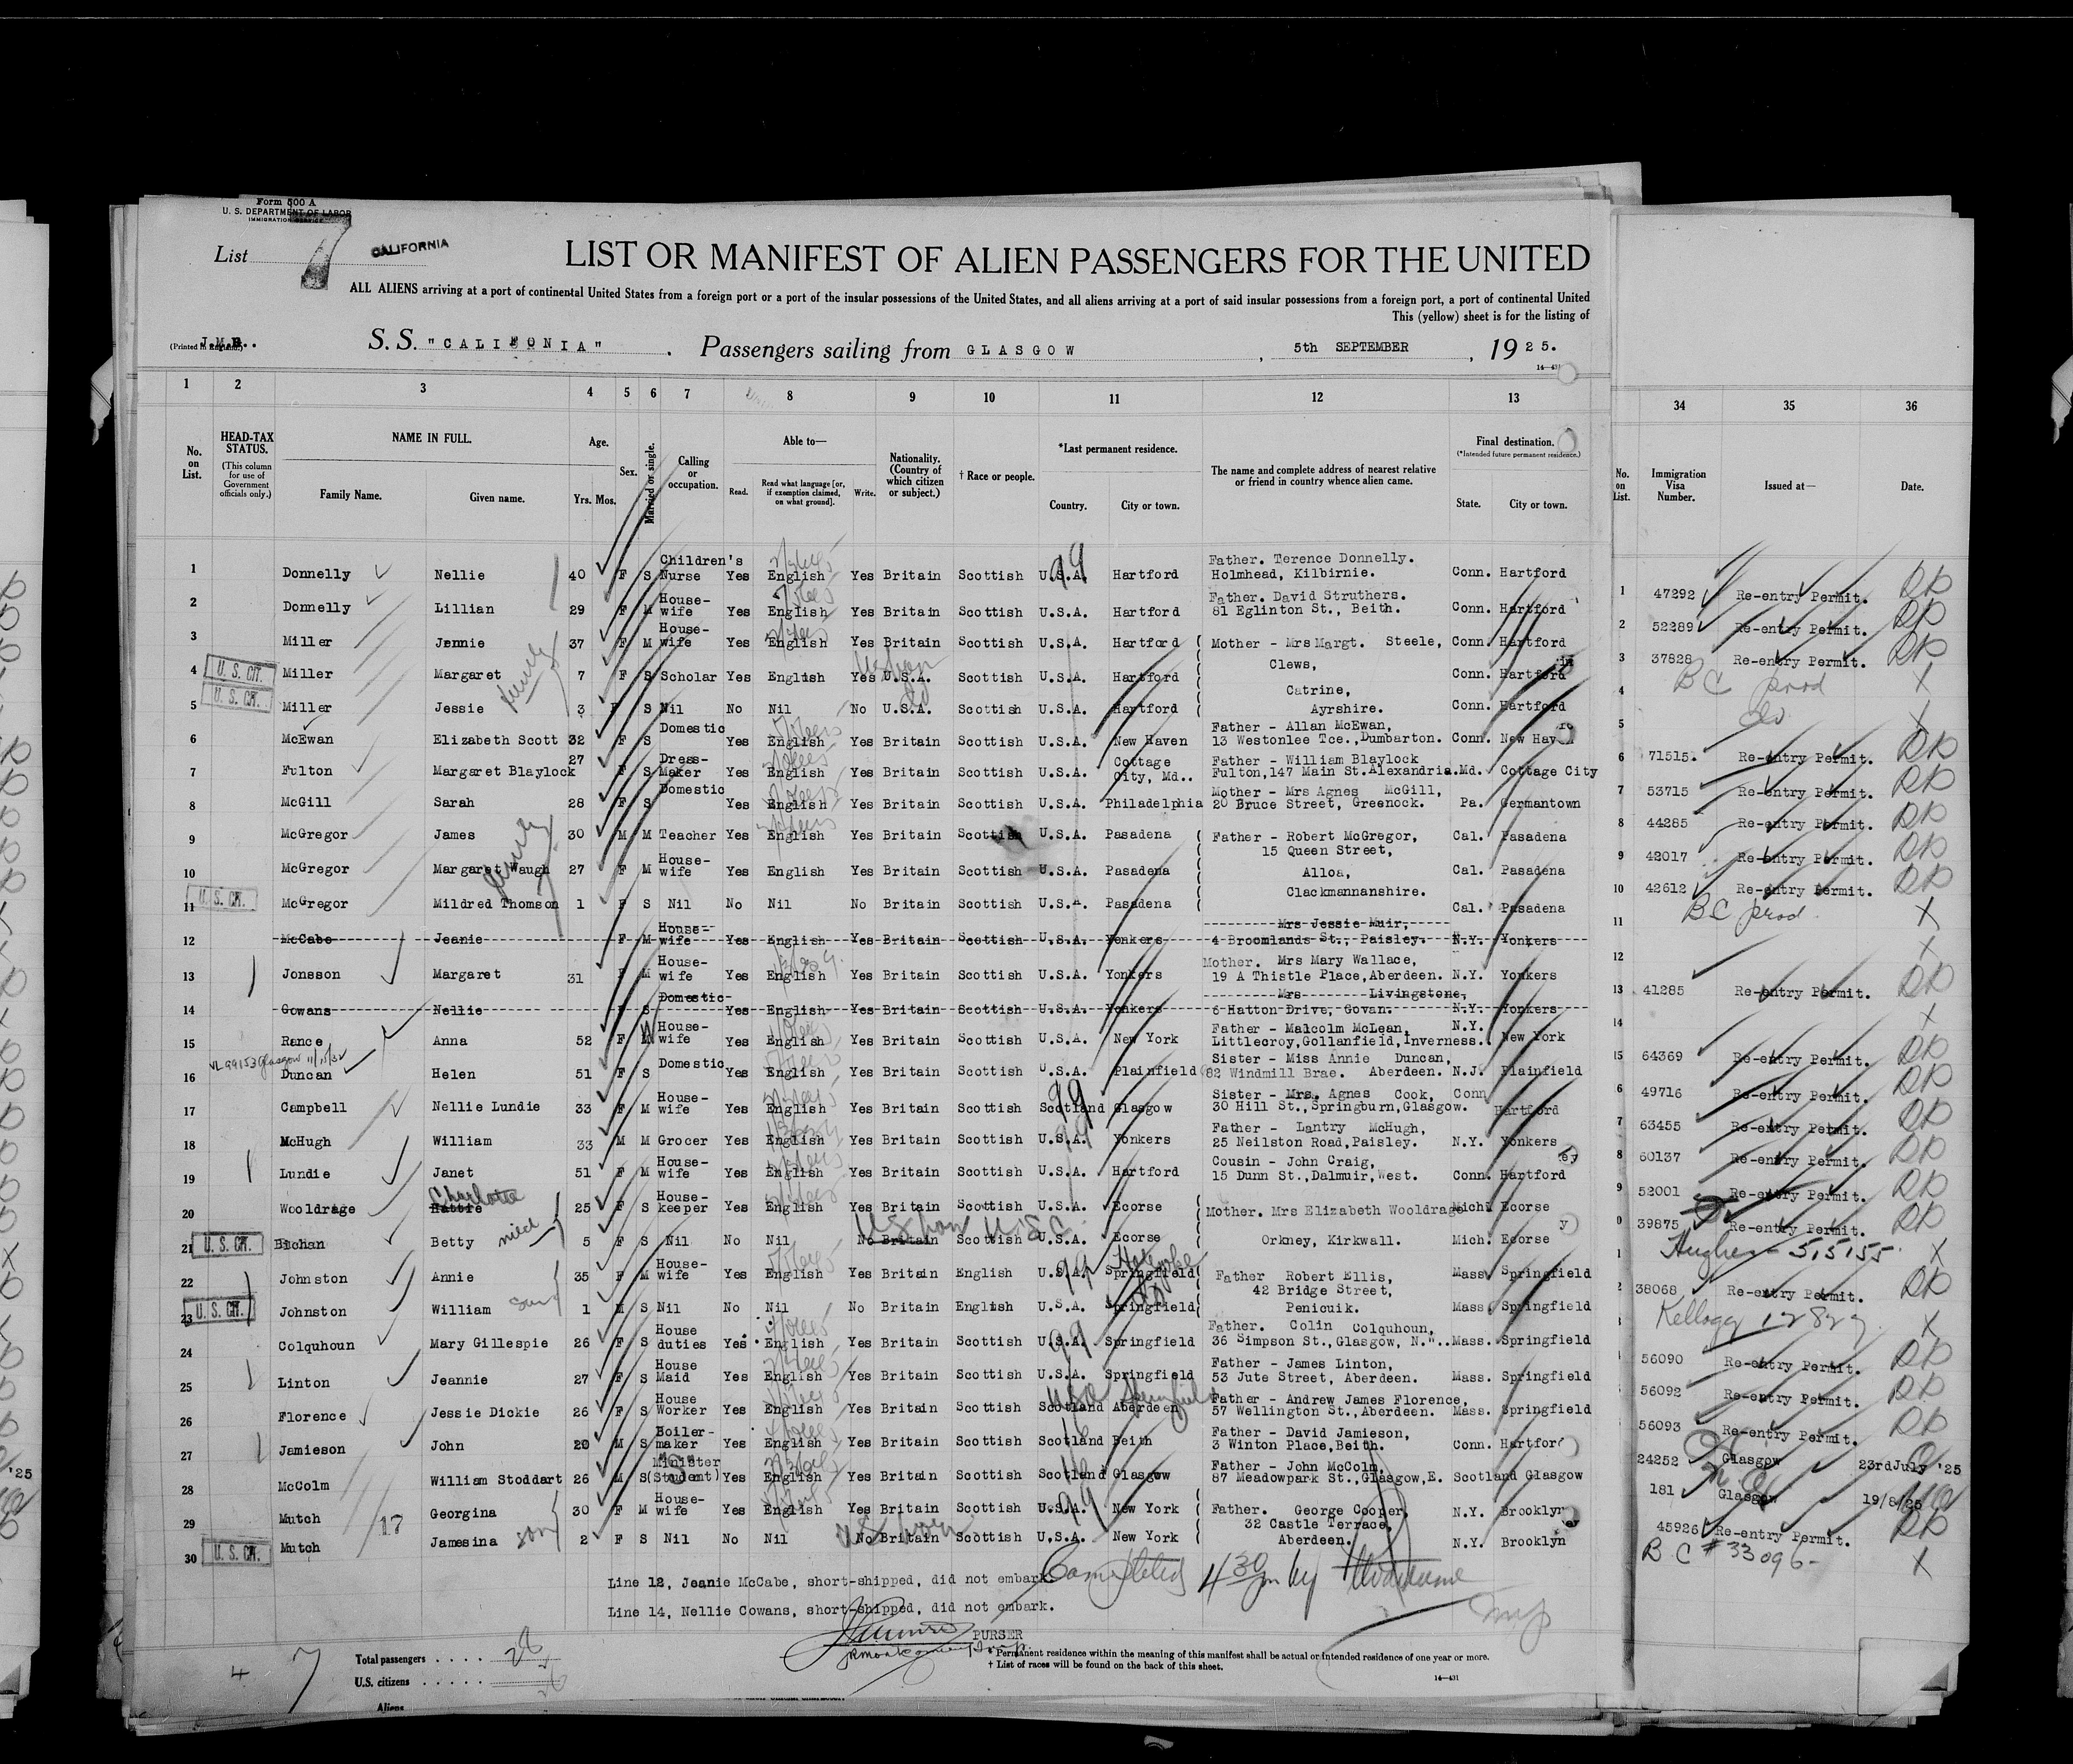 Form 500 A
U. S. DEPARTMENT OF LABOR
IMMIGRATION SERVICE
List 7 CALIFORNIA
LIST OR MANIFEST OF ALIEN PASSENGERS FOR THE UNITED
ALL ALIENS arriving at a port of continental United States from a foreign port or a port of the insular possessions of the United States, and all aliens arriving at a port of said insular possessions from a foreign port, a port of continental United
This (yellow) sheet is for the listing of
(Printed in England.) S. S. "CALIFONIA" . Passengers sailing from GLASGOW , 5th SEPTEMBER , 1925.
14-431
1 2 3 4 5 6 7 8 9 10 11 12 13 34 35 36
No. on List. HEAD-TAX STATUS. (This column for use of Government officials only.) NAME IN FULL. Family Name. Given name. Age. Yrs. Mos. Sex. Married or single. Calling or occupation. Able to— Read. Read what language [or, if exemption claimed, on what ground]. Write. Nationality. (Country of which citizen or subject.) † Race or people. *Last permanent residence. Country. City or town. The name and complete address of nearest relative or friend in country whence alien came. Final destination. (*Intended future permanent residence.) State. City or town. No. on List. Immigration Visa Number. Issued at— Date.
1 Donnelly Nellie 40 F S Children's Nurse Yes English Yes Britain Scottish U.S.A. Hartford Father. Terence Donnelly. Holmhead, Kilbirnie. Conn. Hartford 1 47292 Re-entry Permit.
2 Donnelly Lillian 29 F M House-wife Yes English Yes Britain Scottish U.S.A. Hartford Father. David Struthers. 81 Eglinton St., Beith. Conn. Hartford 2 52289 Re-entry Permit.
3 Miller Jennie 37 F M House-wife Yes English Yes Britain Scottish U.S.A. Hartford Mother - Mrs Margt. Steele, Conn. Hartford 3 37828 Re-entry Permit.
4 U. S. CIT. Miller Margaret 7 F S Scholar Yes English Yes U.S.A. Scottish U.S.A. Hartford Clews, Catrine, Conn. Hartford 4 BC prod X
5 U. S. CIT. Miller Jessie 3 F S Nil No Nil No U.S.A. Scottish U.S.A. Hartford Ayrshire. Conn. Hartford 5 do X
6 McEwan Elizabeth Scott 32 F S Domestic Yes English Yes Britain Scottish U.S.A. New Haven Father - Allan McEwan, 13 Westonlee Tce., Dumbarton. Conn. New Haven 6 71515. Re-entry Permit.
7 Fulton Margaret Blaylock 27 F S Dress-Maker Yes English Yes Britain Scottish U.S.A. Cottage City, Md.. Father - William Blaylock Fulton, 147 Main St. Alexandria. Md. Cottage City 7 53715 Re-entry Permit.
8 McGill Sarah 28 F S Domestic Yes English Yes Britain Scottish U.S.A. Philadelphia Mother - Mrs Agnes McGill, 20 Bruce Street, Greenock. Pa. Germantown 8 44285 Re-entry Permit.
9 McGregor James 30 M M Teacher Yes English Yes Britain Scottish U.S.A. Pasadena Father - Robert McGregor, 15 Queen Street, Cal. Pasadena 9 42017 Re-entry Permit.
10 McGregor Margaret Waugh 27 F M House-wife Yes English Yes Britain Scottish U.S.A. Pasadena Alloa, Cal. Pasadena 10 42612 Re-entry Permit.
11 U. S. CIT. McGregor Mildred Thomson 1 F S Nil No Nil No Britain Scottish U.S.A. Pasadena Clackmannanshire. Cal. Pasadena 11 BC prod. X
12 McCabe Jeanie F M House-wife Yes English Yes Britain Scottish U.S.A. Yonkers Mrs Jessie Muir, 4 Broomlands St., Paisley. N.Y. Yonkers 12 X
13 Jonsson Margaret 31 F M House-wife Yes English Yes Britain Scottish U.S.A. Yonkers Mother. Mrs Mary Wallace, 19 A Thistle Place, Aberdeen. N.Y. Yonkers 13 41285 Re-entry Permit.
14 Gowans Nellie F S Domestic Yes English Yes Britain Scottish U.S.A. Yonkers Mrs Livingstone, 6 Hatton Drive, Govan. N.Y. Yonkers 14 X
15 Rance Anna 52 F M House-wife Yes English Yes Britain Scottish U.S.A. New York Father - Malcolm McLean, Littlecroy, Gollanfield, Inverness.. N.Y. New York 15 64369 Re-entry Permit.
16 Duncan Helen 51 F S Domestic Yes English Yes Britain Scottish U.S.A. Plainfield Sister - Miss Annie Duncan, 82 Windmill Brae. Aberdeen. N.J. Plainfield 6 49716 Re-entry Permit.
17 Campbell Nellie Lundie 33 F M House-wife Yes English Yes Britain Scottish Scotland Glasgow Sister - Mrs. Agnes Cook, 30 Hill St., Springburn, Glasgow. Conn Hartford 7 63455 Re-entry Permit.
18 McHugh William 33 M M Grocer Yes English Yes Britain Scottish U.S.A. Yonkers Father - Lantry McHugh, 25 Neilston Road, Paisley. N.Y. Yonkers 8 60137 Re-entry Permit.
19 Lundie Janet 51 F M House-wife Yes English Yes Britain Scottish U.S.A. Hartford Cousin - John Craig, 15 Dunn St., Dalmuir, West. Conn. Hartford 9 52001 Re-entry Permit.
20 Wooldrage Charlotte Hattie 25 F S House-keeper Yes English Yes Britain Scottish U.S.A. Ecorse Mother. Mrs Elizabeth Wooldrage Mich. Ecorse 0 39875 Re-entry Permit.
21 U. S. CIT. Betty 5 F S Nil No Nil No Britain Scottish U.S.A. Ecorse Orkney, Kirkwall. Mich. Ecorse 1 Hughes - 515155 X
22 Johnston Annie 35 F M House-wife Yes English Yes Britain English U.S.A. Springfield Father Robert Ellis, 42 Bridge Street, Mass. Springfield 2 38068 Re-entry Permit.
23 U. S. CIT. Johnston William son 1 M S Nil No Nil No Britain English U.S.A. Springfield Penicuik. Mass. Springfield Kellogg X
24 Colquhoun Mary Gillespie 26 F S House duties Yes English Yes Britain Scottish U.S.A. Springfield Father. Colin Colquhoun, 36 Simpson St., Glasgow, N.".. Mass. Springfield 56090 Re-entry Permit.
25 Linton Jeannie 27 F S House Maid Yes English Yes Britain Scottish U.S.A. Springfield Father - James Linton, 53 Jute Street, Aberdeen. Mass. Springfield 56092 Re-entry Permit.
26 Florence Jessie Dickie 26 F S House Worker Yes English Yes Britain Scottish Scotland Aberdeen Father - Andrew James Florence, 57 Wellington St., Aberdeen. Mass. Springfield 56093 Re-entry Permit.
27 Jamieson John 29 M S Boiler-maker Yes English Yes Britain Scottish Scotland Beith Father - David Jamieson, 3 Winton Place, Beith. Conn. Hartford 24252 Glasgow 23rd July '25
28 McColm William Stoddart 26 M S Minister (Student) Yes English Yes Britain Scottish Scotland Glasgow Father - John McColm, 87 Meadowpark St., Glasgow, E. Scotland Glasgow 181 Glasgow 19/8/25
29 Mutch 17 Georgina 30 F M House-wife Yes English Yes Britain Scottish U.S.A. New York Father. George Cooper, 32 Castle Terrace, N.Y. Brooklyn 45926 Re-entry Permit.
30 U. S. CIT. Mutch Jamesina 2 F S Nil No Nil No Britain Scottish U.S.A. New York Aberdeen. N.Y. Brooklyn B C # 33096- X
Line 12, Jeanie McCabe, short-shipped, did not embark. Completed 430 pm by
Line 14, Nellie Cowans, short-shipped, did not embark.
PURSER
* Permanent residence within the meaning of this manifest shall be actual or intended residence of one year or more.
† List of races will be found on the back of this sheet.
14-431
4 7 Total passengers . . . . 28
U. S. citizens . . . . .
Aliens